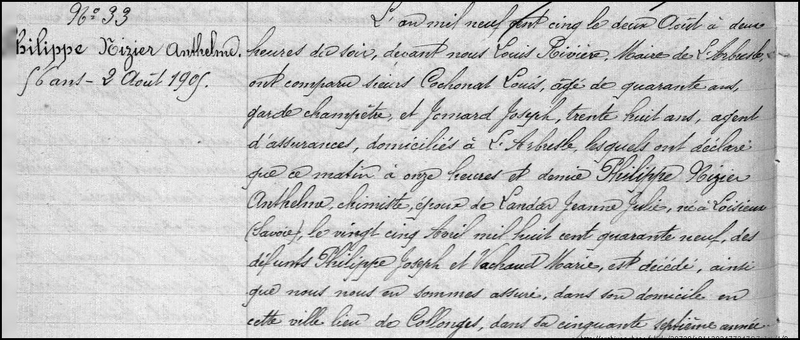 N° 33
Philippe Nizier Anthelme
56 ans - 2 Août 1905.
L'an mil neuf cent cinq le deux Août à deux
heures du soir, devant nous Louis Rivière, Maire de L'Arbresle,
ont comparu sieurs Cochonat Louis, âgé de quarante ans,
garde champêtre, et Jomard Joseph, trente huit ans, agent
d'assurances, domiciliés à L'Arbresle, lesquels ont déclaré
que ce matin à onze heures et demie Philippe Nizier
Anthelme, chimiste, époux de Landar Jeanne Julie, né à Loisieux
(Savoie), le vingt cinq Avril mil huit cent quarante neuf, des
défunts Philippe Joseph et Vachaud Marie, est décédé, ainsi
que nous nous en sommes assuré, dans son domicile en
cette ville lieu de Collonges, dans sa cinquante septième année